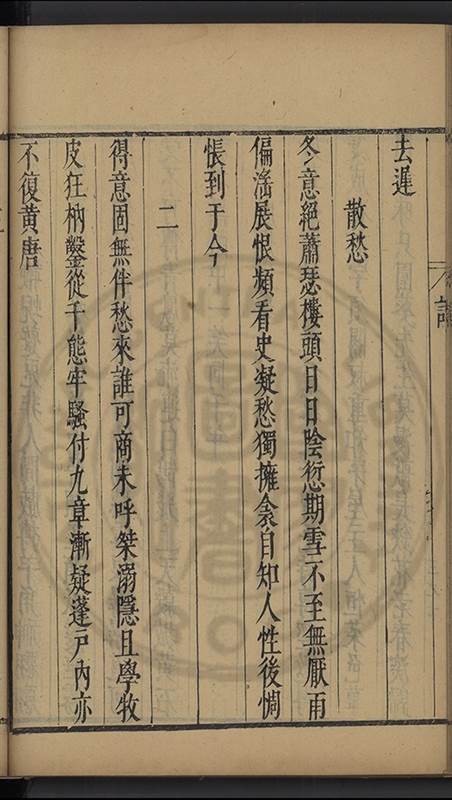 去遲
散愁
冬意絕蕭瑟樓頭日日陰愆期雪不至無厭雨
偏滛展恨頻看史凝愁獨擁衾自知人性後惆
悵到于今
二
得意固無伴愁來誰可商未呼桀溺隱且學牧
皮狂枘鑿從千態牢騷付九章漸疑蓬戶內亦
不復黄唐